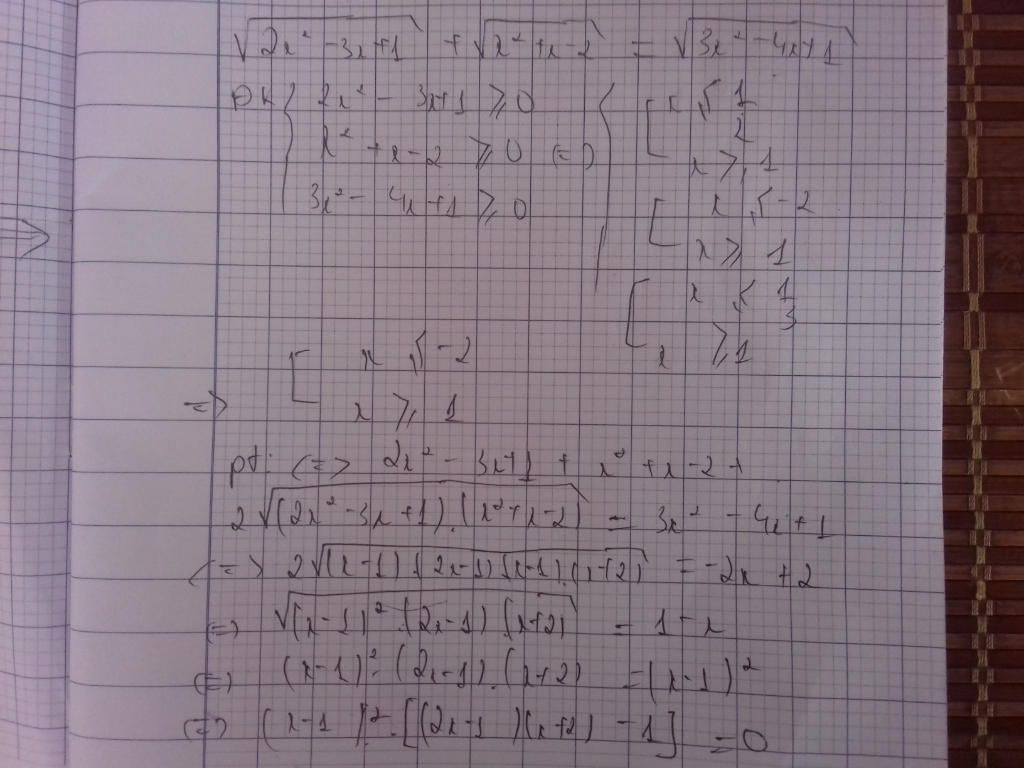 √(2x² - 3x + 1) + √(x² + x - 2) = √(3x² - 4x + 1)
ĐK { 2x² - 3x + 1 ⩾ 0
x² + x - 2 ⩾ 0 (=)
3x² - 4x + 1 ⩾ 0
{ [ x ⩽ 1/2
x ⩾ 1
[ x ⩽ -2
x ⩾ 1
[ x ⩽ 1/3
x ⩾ 1
=> [ x ⩽ -2
x ⩾ 1
pt: <=> 2x² - 3x + 1 + x² + x - 2 +
2√((2x² - 3x + 1).(x² + x - 2)) = 3x² - 4x + 1
<=> 2√((x-1)(2x-1)(x-1).(x+2)) = -2x + 2
(=) √((x-1)².(2x-1).(x+2)) = 1 - x
(=) (x-1)².(2x-1).(x+2) = (x-1)²
(=) (x-1)².[(2x-1)(x+2) - 1] = 0